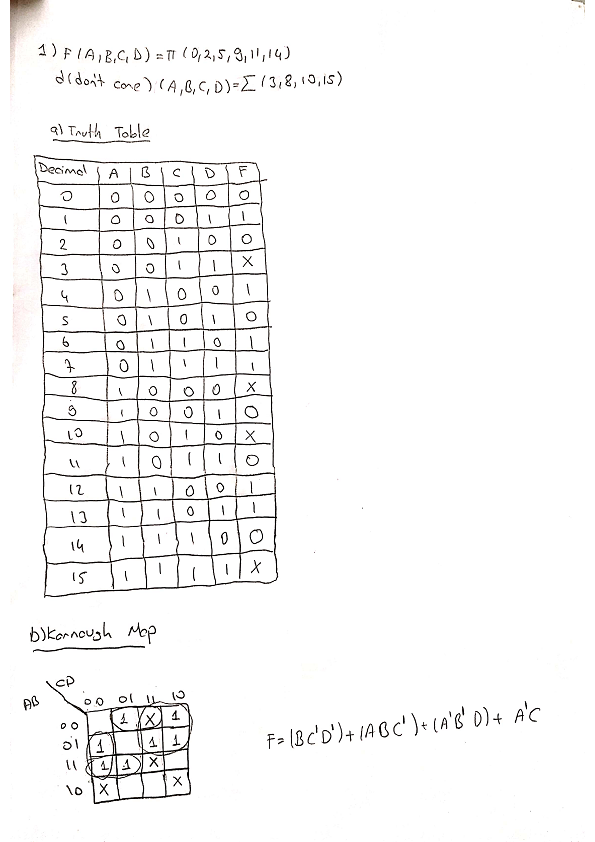 1) F(A,B,C,D) = π (0,2,5,9,11,14)
d(don't care) (A,B,C,D) = Σ (3,8,10,15)
a) Truth Table
Decimal A B C D F
0 0 0 0 0 0
1 0 0 0 1 1
2 0 0 1 0 0
3 0 0 1 1 X
4 0 1 0 0 1
5 0 1 0 1 0
6 0 1 1 0 1
7 0 1 1 1 1
8 1 0 0 0 X
9 1 0 0 1 0
10 1 0 1 0 X
11 1 0 1 1 0
12 1 1 0 0 1
13 1 1 0 1 1
14 1 1 1 0 0
15 1 1 1 1 X
b) Karnough Map
CD
AB 00 01 11 10
00 1 X 1
01 1 1 1
11 1 1 X
10 X X
F = (BC'D') + (ABC') + (A'B'D) + A'C